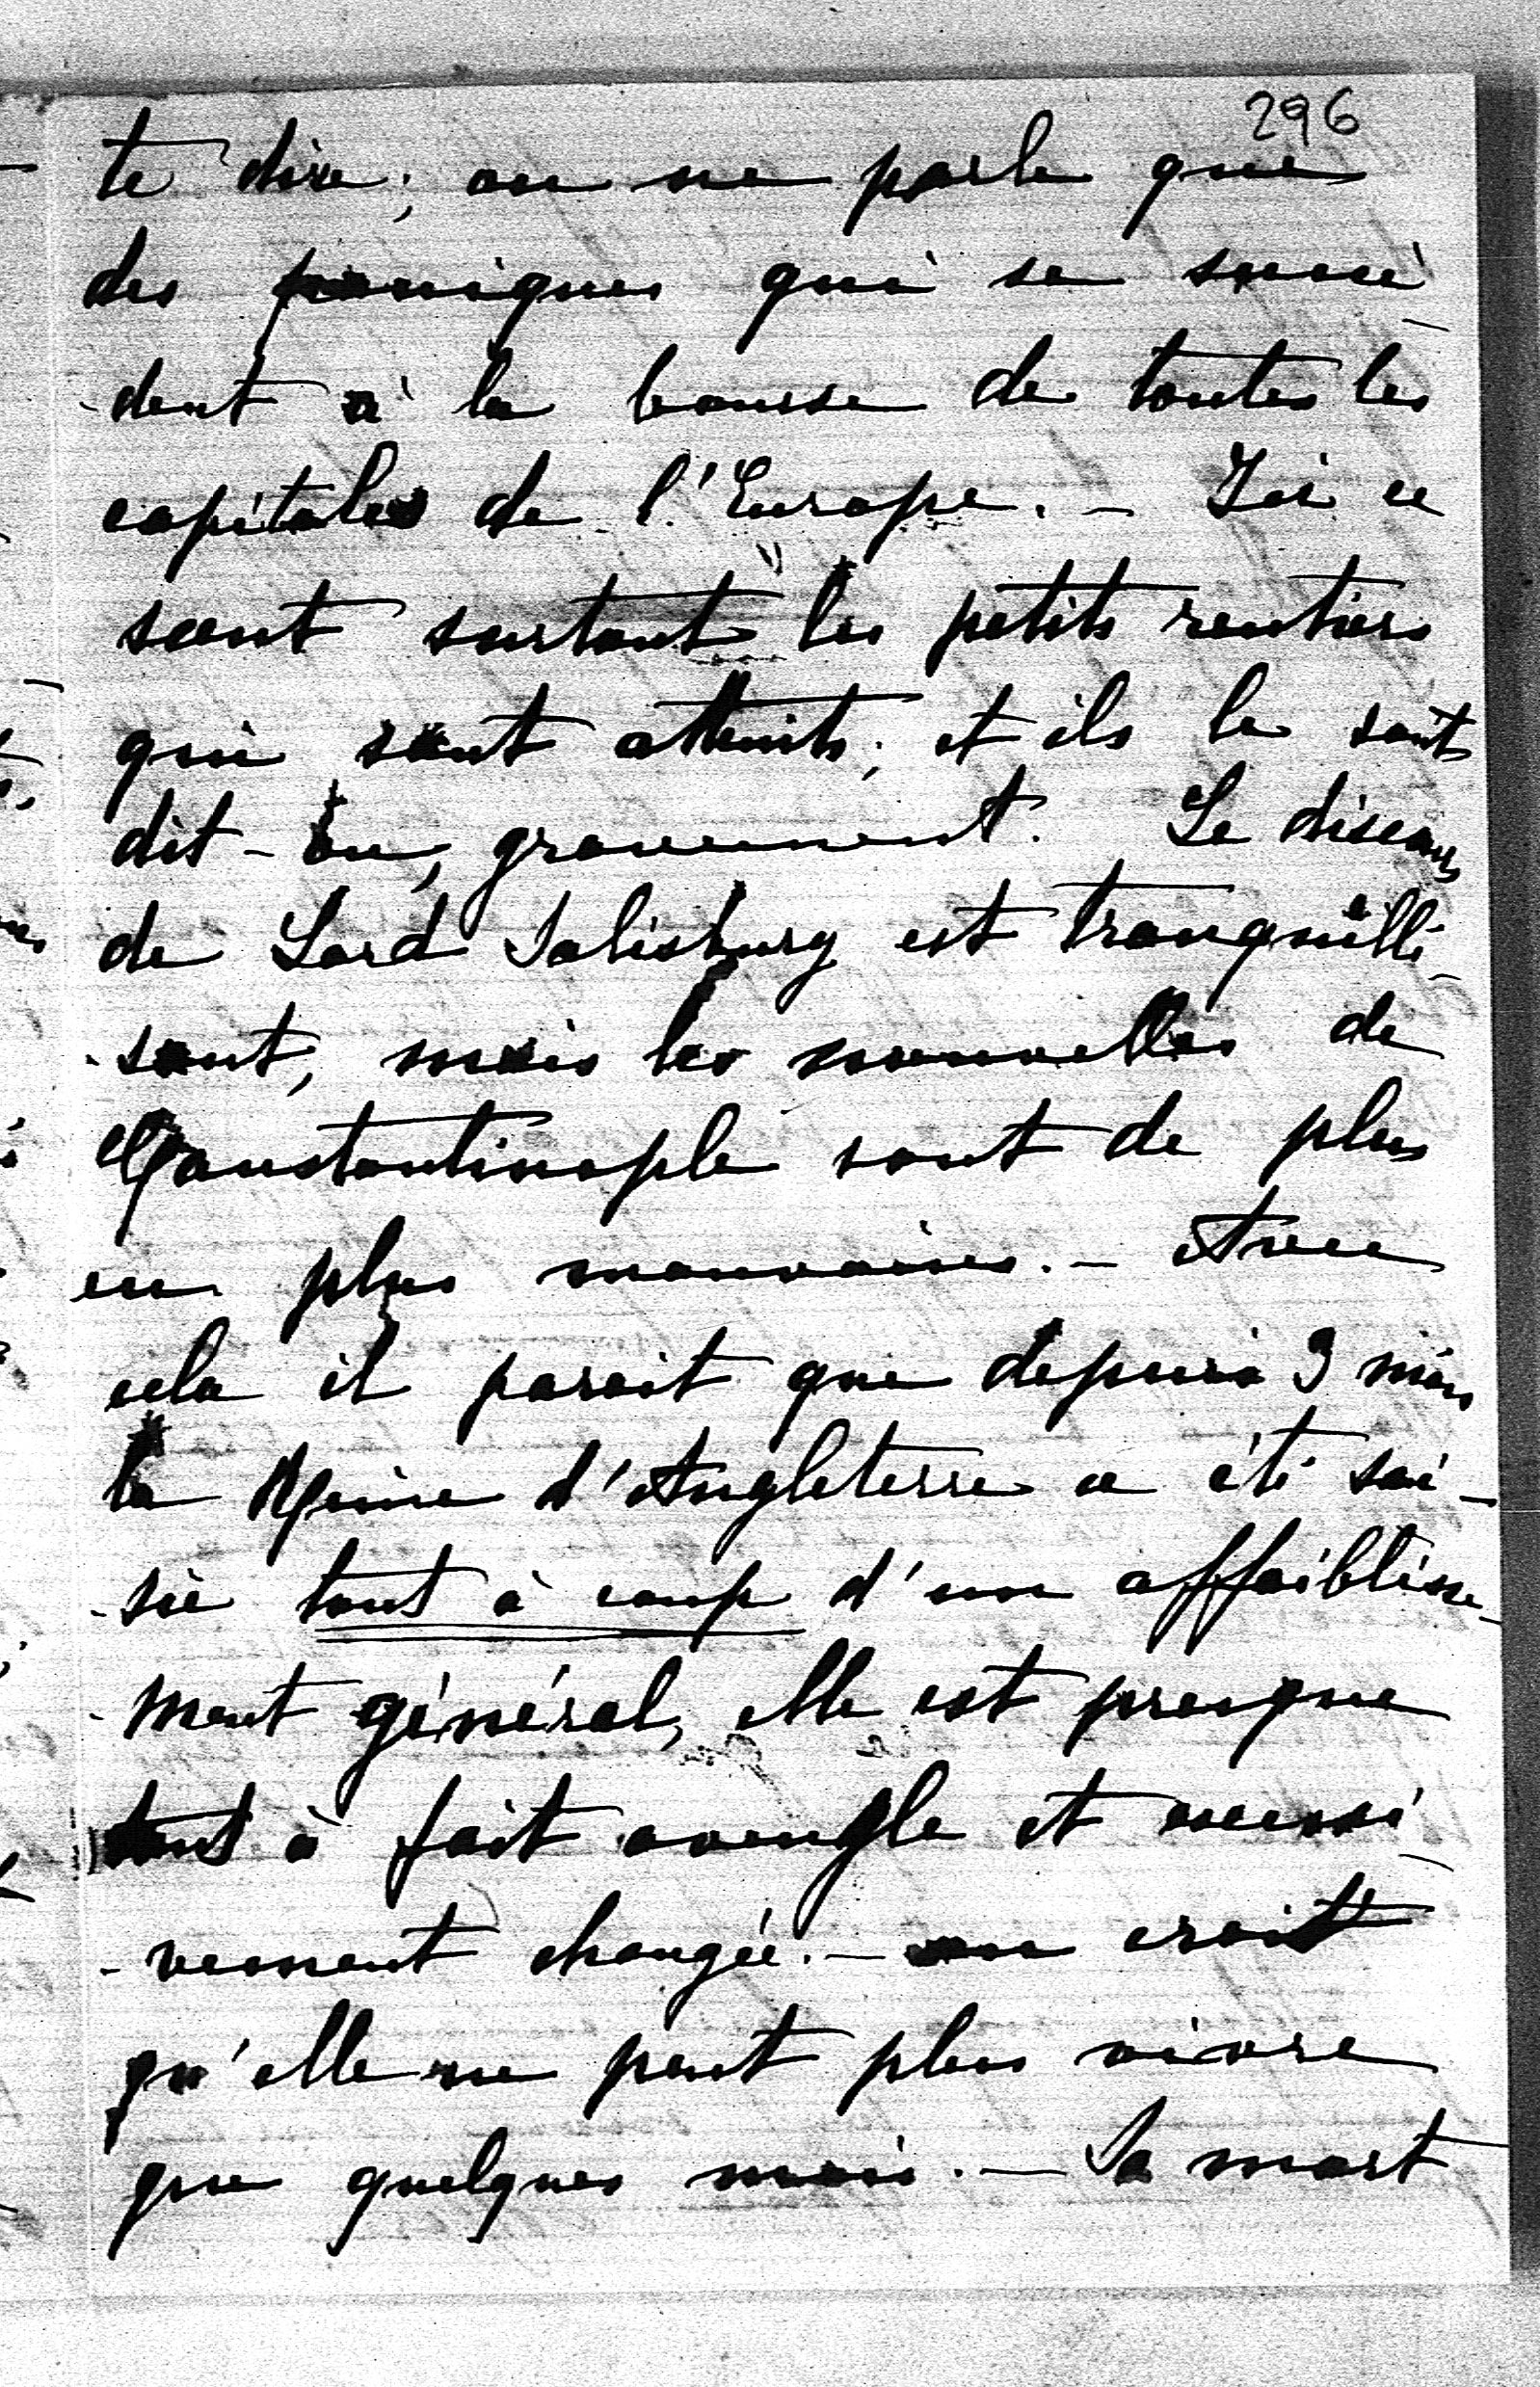 296
te dire; on ne parle que
des paniques qui se succè-
-dent à la bourse de toutes les
capitales de l'Europe. - Ici ce
sont surtout les petits rentiers
qui sont atteints; et ils le sont
dit-on, gravement. Le discours
de Lord Salisbury est tranquilli-
-sant, mais les nouvelles de
Constantinople sont de plus
en plus mauvaises. - Avec
cela il parait que depuis 3 mois
la Reine d'Angleterre a été sai-
-sie tout à coup d'un affaiblisse-
-ment général, elle est presque
tout à fait aveugle et excessi-
-vement changée. - on croit
qu'elle ne peut plus vivre
que quelques mois. - Sa mort